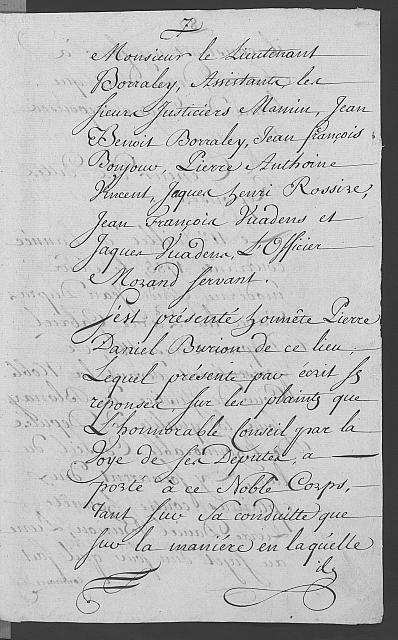 7
Monsieur le Lieutenant
Borraley, Assistants, les
sieurs Justiciers Mamin, Jean
Benoit Borraley, Jean françois
Bonjour, Pierre Anthoine
Vincent, Jaques henri Rossire,
Jean François Vuadens et
Jaques Vuadens, L'Officier
Mozand servant.
S'est présenté honnête Pierre
Daniel Burion de ce lieu,
Lequel présente par écrit ses
réponses, sur les plaintes que
L'honnorable Conseil par la
Voye de ses Députés, a
porté à ce Noble Corps,
tant sur sa conduitte que
sur la maniére en laquélle
il